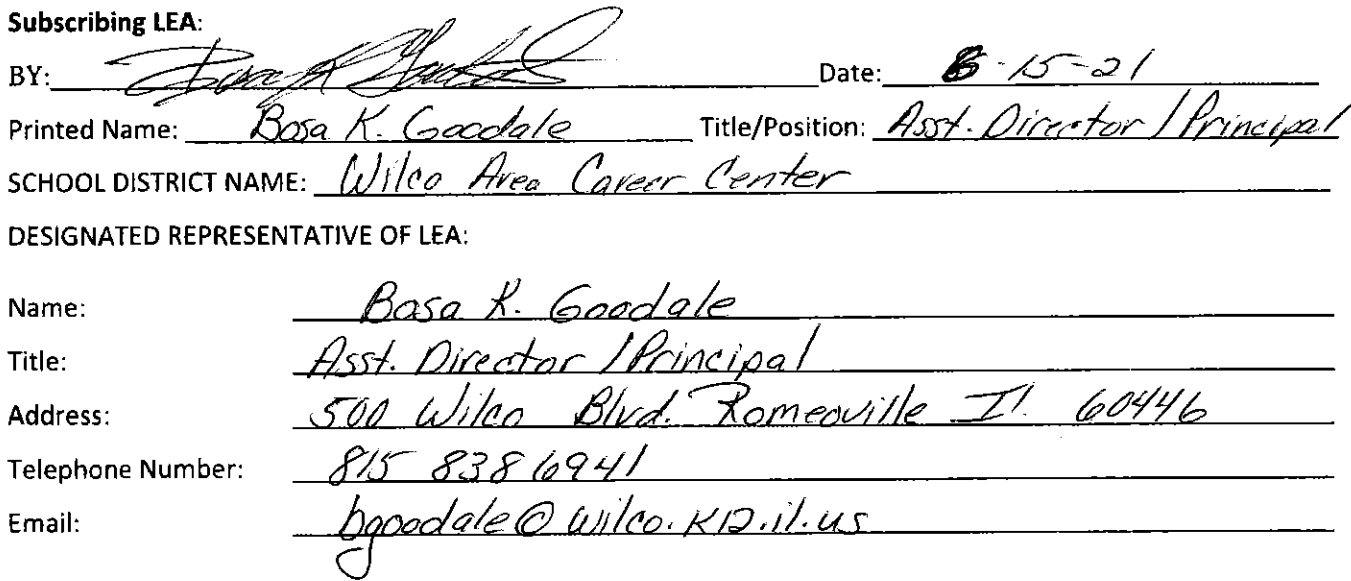 Subscribing LEA:
BY: Date: -15-21
Printed Name: Bosa K. Goodale Title/Position: Asst. Director / Principal
SCHOOL DISTRICT NAME: Wilco Area Career Center
DESIGNATED REPRESENTATIVE OF LEA:
Name: Bosa K. Goodale
Title: Asst. Director / Principal
Address: 500 Wilco Blvd. Romeoville Il. 60446
Telephone Number: 815 838 6941
Email: bgoodale@wilco.k12.il.us